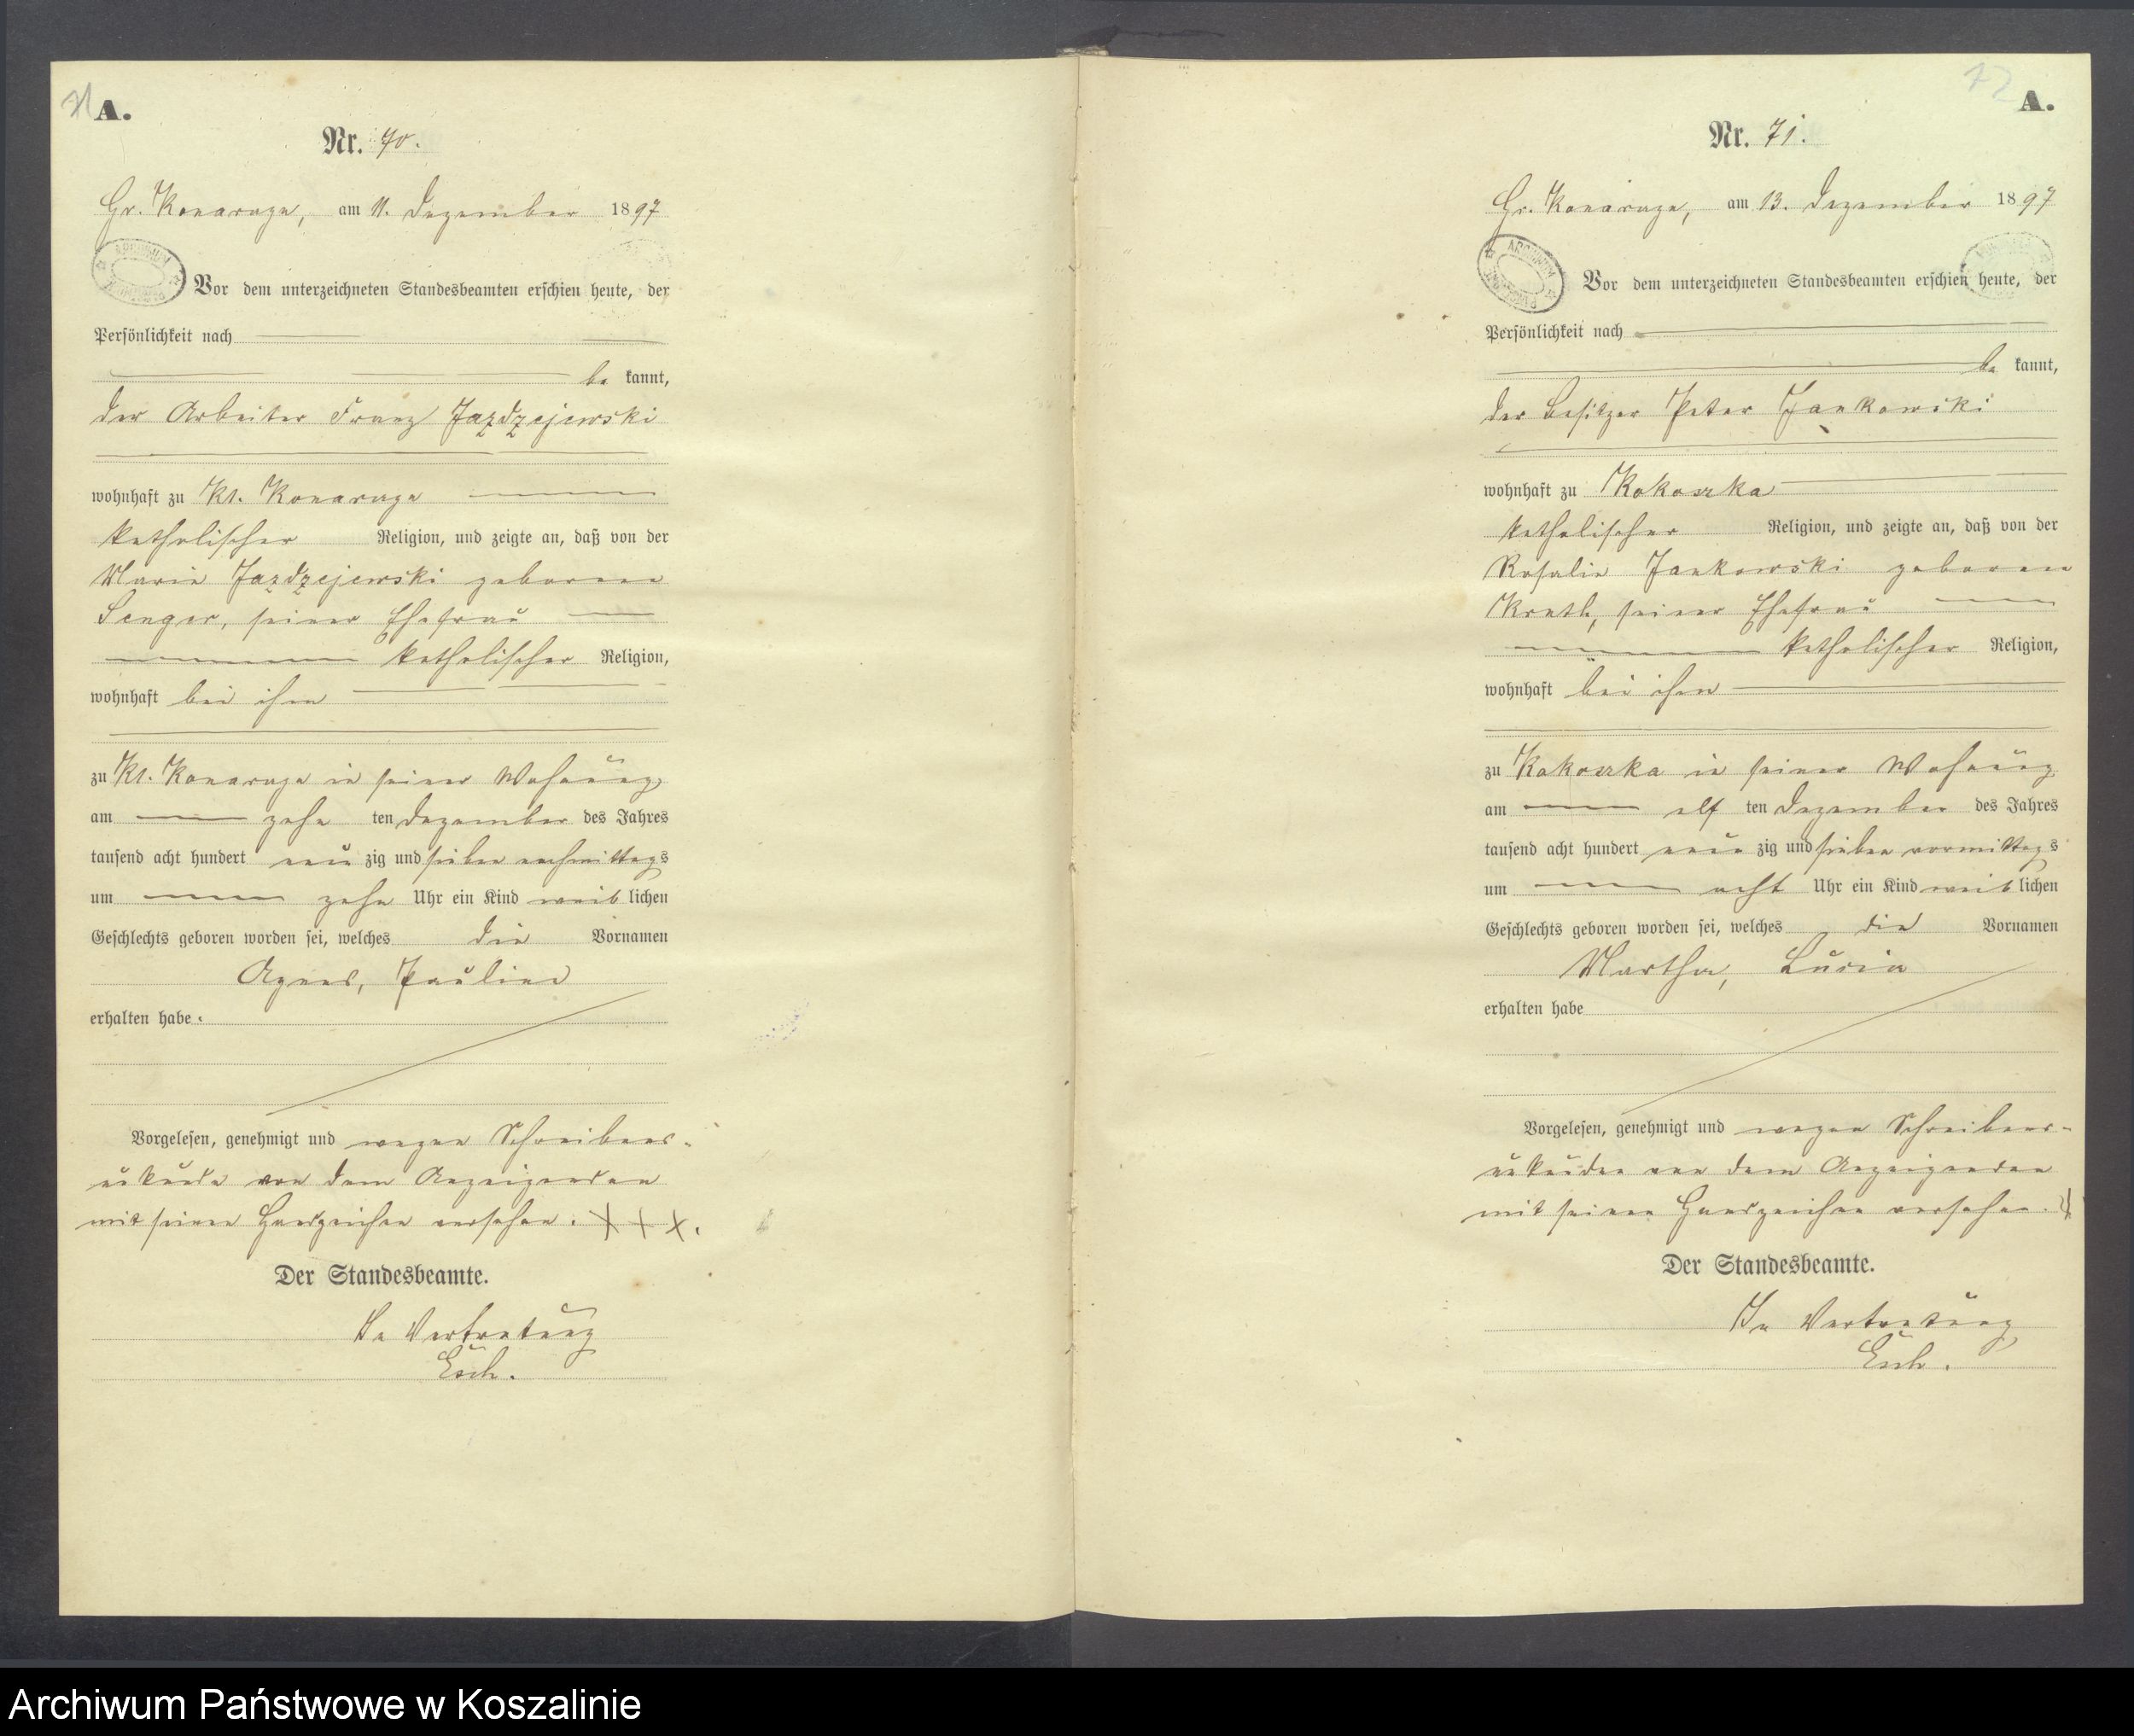 71
A.
Nr. 70.
Gr. Konarzyn, am 11. Dezember 1897
ARCHIWUM
Vor dem unterzeichneten Standesbeamten erschien heute, der
Persönlichkeit nach
be kannt,
der Arbeiter Franz Jazdzejewski
wohnhaft zu Kl. Konarzyn
katholischer Religion, und zeigte an, daß von der
Marie Jazdzejewski geborene
Senger, seiner Ehefrau
katholischer Religion,
wohnhaft bei ihm
zu Kl. Konarzyn in seiner Wohnung
am zehn ten Dezember des Jahres
tausend acht hundert neun zig und sieben nachmittags
um zehn Uhr ein Kind weib lichen
Geschlechts geboren worden sei, welches die Vornamen
Agnes, Pauline
erhalten habe.
Vorgelesen, genehmigt und wegen Schreibens-
unkunde von dem Anzeigenden
mit seinen Handzeichen versehen. + + +.
Der Standesbeamte.
In Vertretung
Esch.
72
A.
Nr. 71.
Gr. Konarzyn, am 13. Dezember 1897
ARCHIWUM
Vor dem unterzeichneten Standesbeamten erschien heute, der
Persönlichkeit nach
be kannt,
der Besitzer Peter Jankowski
wohnhaft zu Kokoszka
katholischer Religion, und zeigte an, daß von der
Rosalie Jankowski geborene
seiner Ehefrau
katholischer Religion,
wohnhaft bei ihm
zu Kokoszka in seiner Wohnung
am elf ten Dezember des Jahres
tausend acht hundert neun zig und sieben vormittags
um acht Uhr ein Kind weib lichen
Geschlechts geboren worden sei, welches die Vornamen
Martha, Lucia
erhalten habe
Vorgelesen, genehmigt und wegen Schreibens-
unkunden von dem Anzeigenden
mit seinen Handzeichen versehen.
Der Standesbeamte.
In Vertretung
Esch.
Archiwum Państwowe w Koszalinie